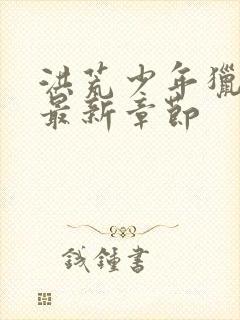 洪荒少年獵
最新章節
錢鍾書